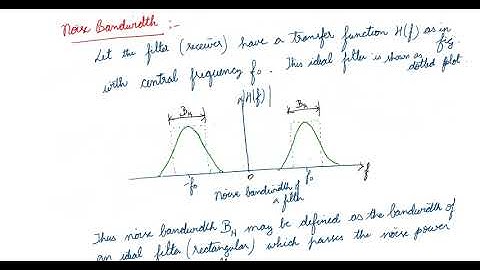 Noise Bandwidth :-
Let the filter (receiver) have a transfer function H(f) as in fig.
with central frequency f₀. This ideal filter is shown as dotted plot.
|H(f)|
B_N B_N
-f₀ 0 f₀ f
Noise bandwidth of
a filter
Thus noise bandwidth B_N may be defined as the bandwidth of
an ideal filter (rectangular) which passes the noise power